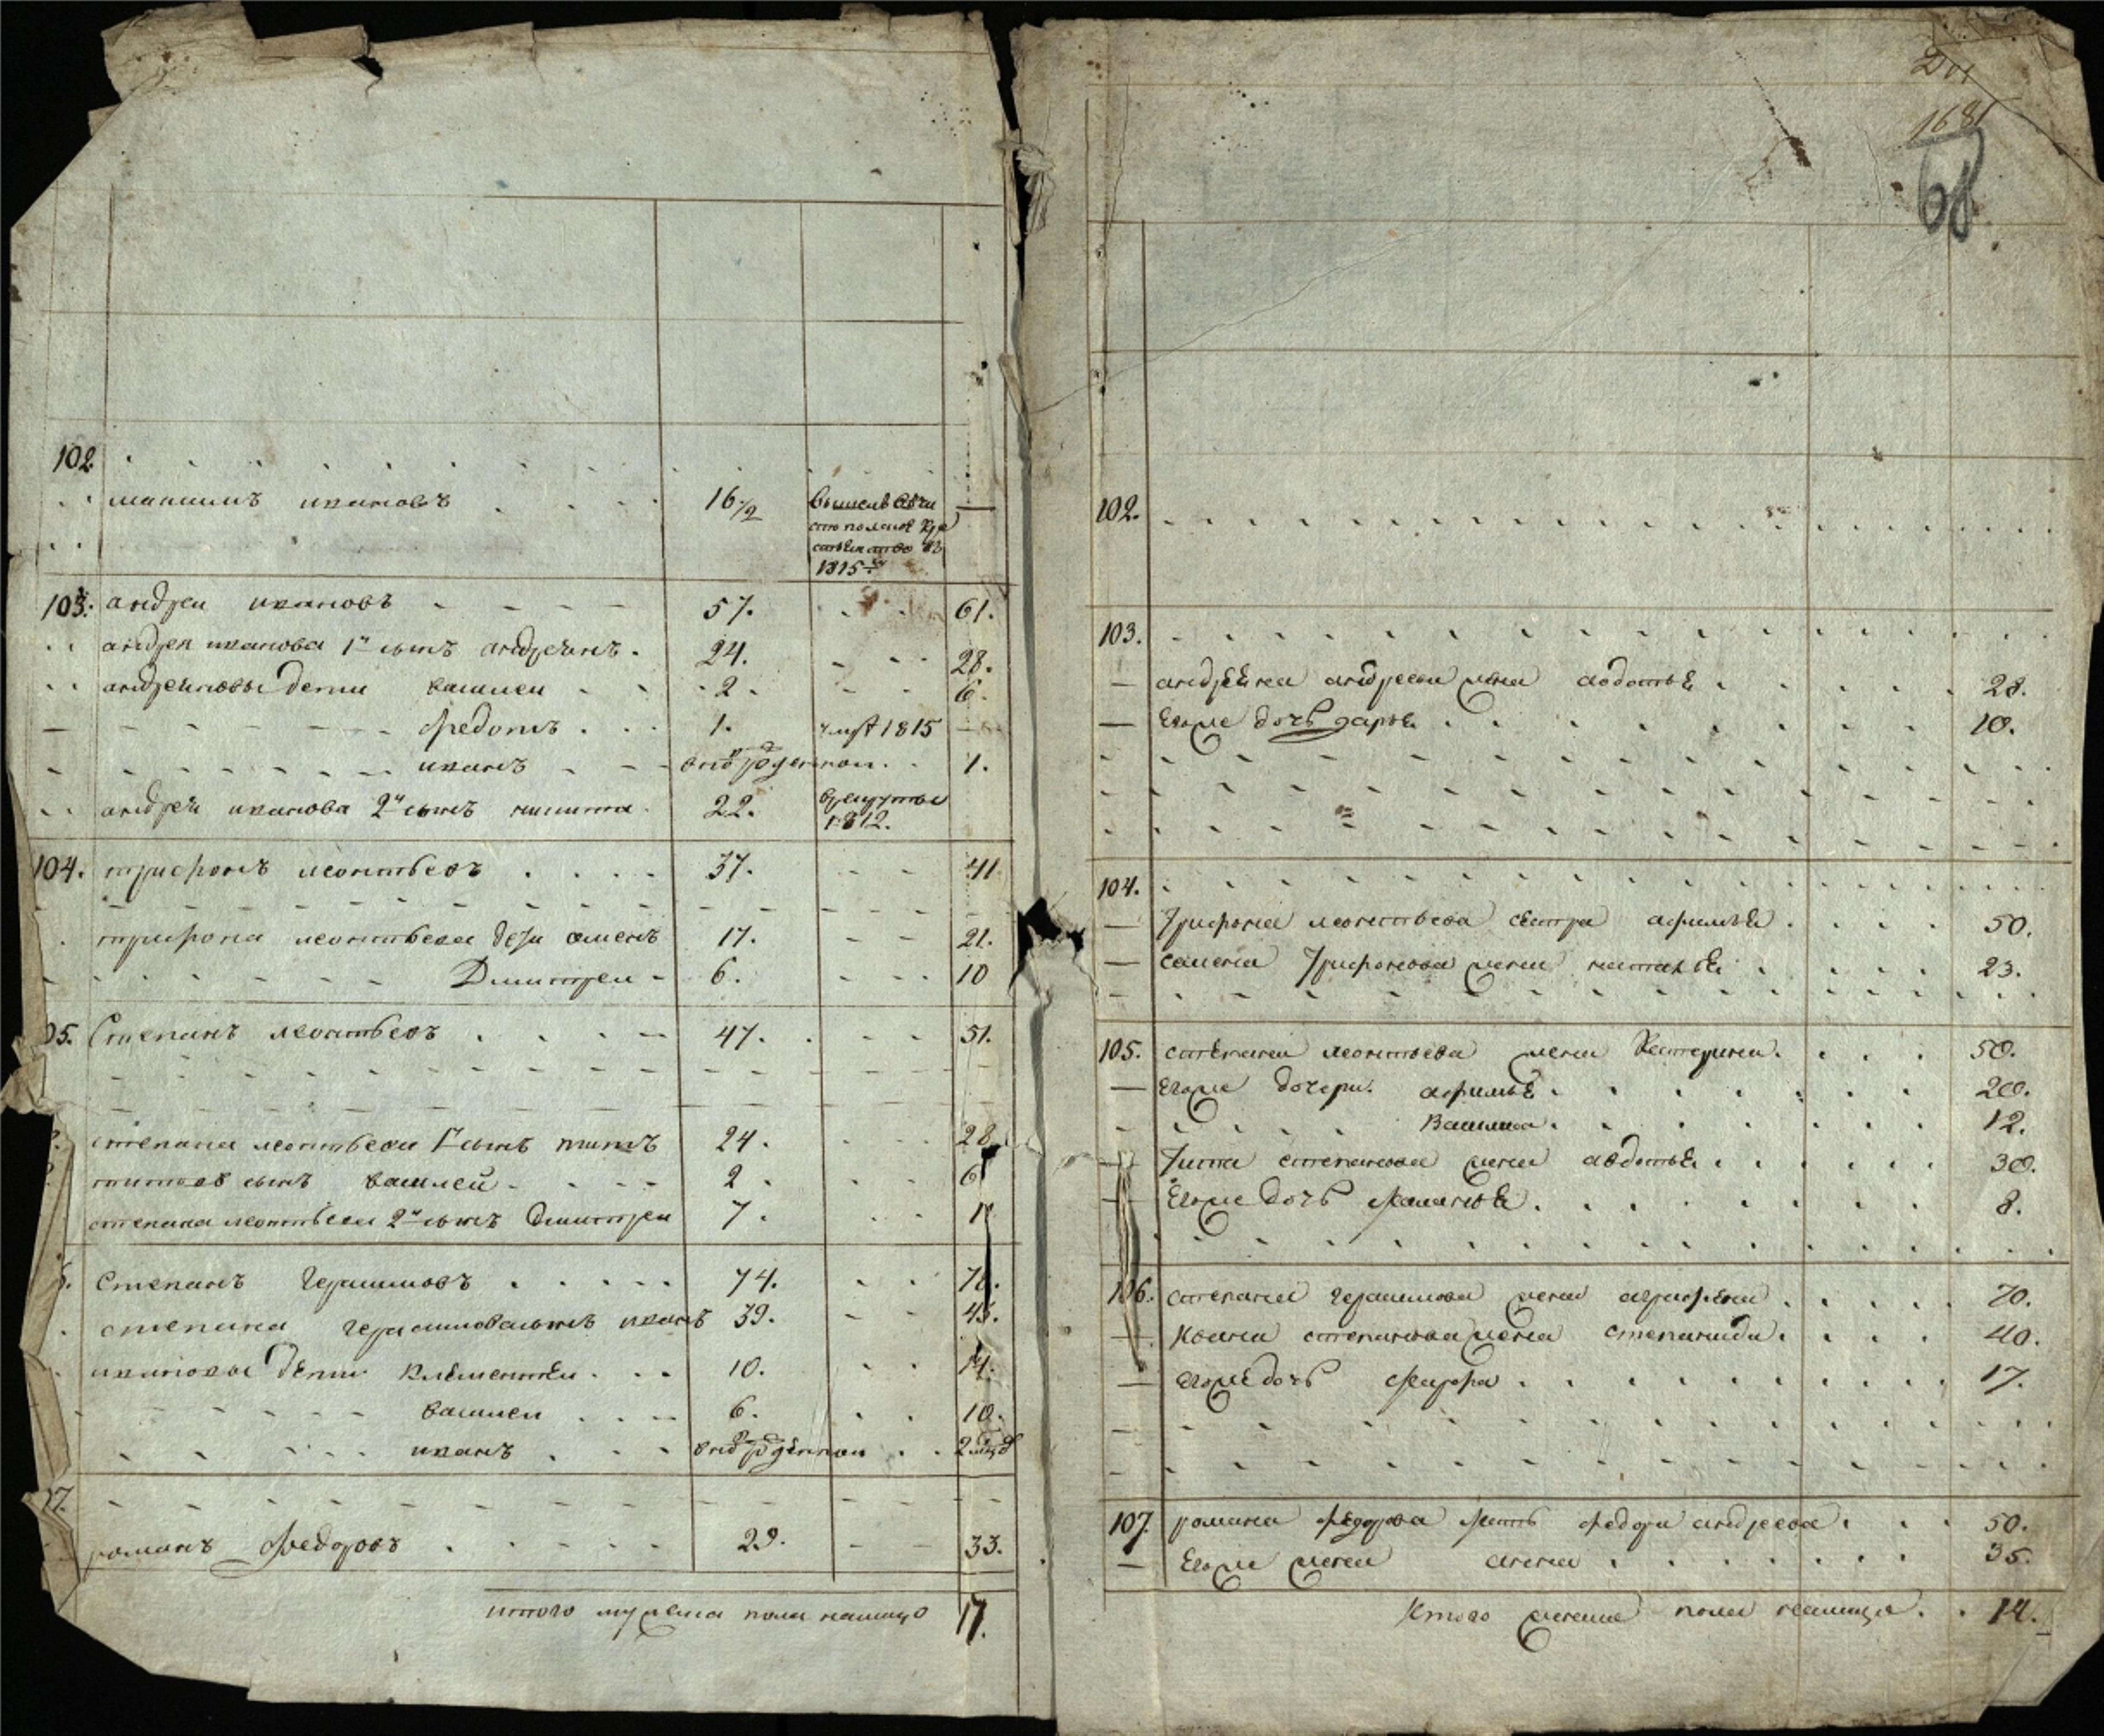 102.
максимъ ивановъ 16 1/2
1815
103. андреи ивановъ 57. 61.
андрея иванова 1й сынъ андреянъ. 24. 28.
андреяновы дети василеи 2. 6.
федотъ 1. умре 1815
иванъ внов рожденнои 1.
андрея иванова 2й сынъ никита 22. в рекруты 1812.
104. трифонъ леонтьевъ 37. 41
трифона леонтьева дети семенъ 17. 21.
Дмитреи 6. 10
05. Степанъ леонтьевъ 47. 51.
степана леонтьева 1й сынъ титъ 24. 28
титов сынъ василей 2 6
степана леонтьева 2й сынъ Дмитреи 7. 11
6. Степанъ Герасимовъ 74. 78.
степана герасимова сынъ иванъ 39. 43.
ивановы дети Клементеи 10. 14.
василеи 6. 10.
иванъ внов рожденнои 2
07.
романъ Федоровъ 29. 33.
итого мужеска пола налицо 17.
201
168
68
102.
103.
андреяна андреева жена авдотья 28.
Егоже дочь дарья 10.
104.
Трифона леонтьева сестра афимья 50.
семена Трифонова жена наталья 23.
105. степана леонтьева жена Катерина. 50.
Егоже дочери. афимья 20.
Василиса. 12.
Тита степанова жена авдотья 30.
Егоже дочь маланья. 8.
106. степана герасимова жена аграфена 70.
Ивана степанова жена степанида. 40.
егоже дочь 17.
107. романа федорова мать федора андреева 50.
Егоже жена анна 35.
Итого женска пола налицо. 14.